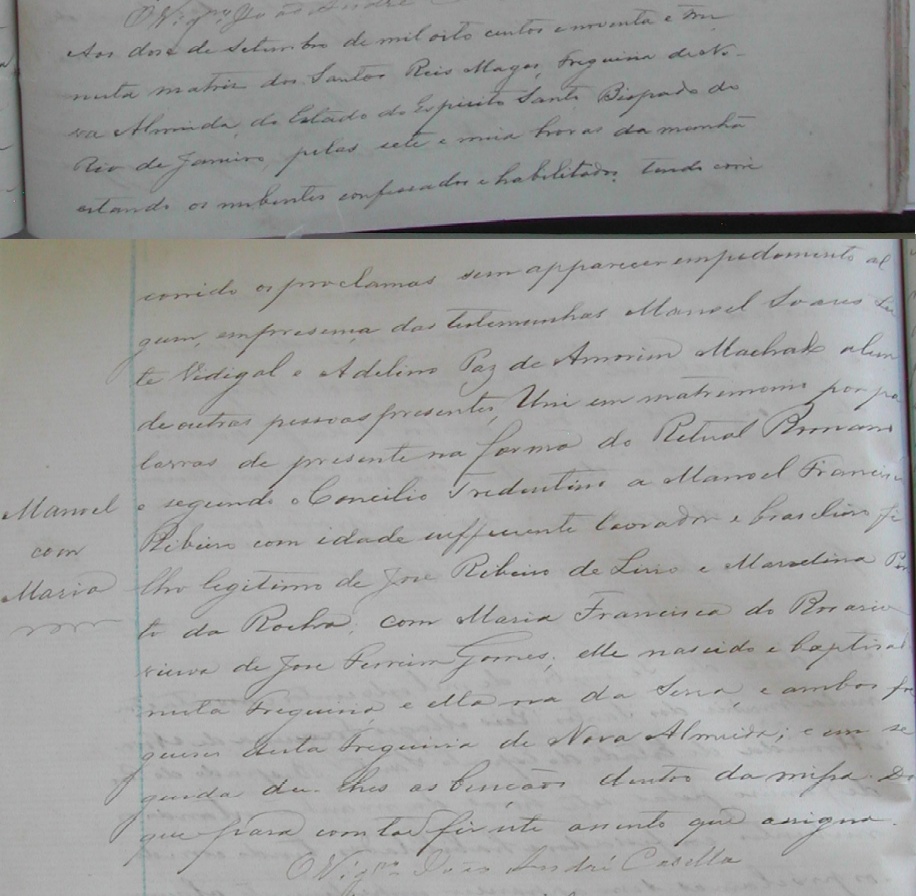 O Vigrº João André
Aos dose de Setembro de mil oito centos e noventa e
nesta matriz dos Santos Reis Magos, Freguisia de No-
va Almeida, do Estado do Espirito Santo Bispado do
Rio de Janeiro, pelas sete e meia horas da manhã
estando os nubentes confessados e habilitados, tendo corri
corrido os proclamas sem apparecer empedimento al
gum, empresença das testemunhas Manoel Soares Lei
te Vidigal e Adelino Paz de Amorim Machado alem
de outras pessoas presentes, Uni em matremonio por pa
lavras de presente na forma do Retual Romano
e segundo o Concilio Tredentino a Manoel Francisco
Manoel
com
Maria
Ribeiro com idade sufficiente lavrador e brasileiro fi
lho legitimo de Jose Ribeiro de Lirio e Marcelina Pin
to da Rocha; com Maria Francisca do Rosario
viuva de Jose Ferreira Gomes, elle nascido e baptisado
nesta Freguisia e ella na da Serra, e ambos fre
gueses desta Freguisia de Nova Almeida; e em se
guida dei lhes as bençãos dentro da missa. Do
que para constar fiz este assento que assigno.
O Vigrº João André Casella